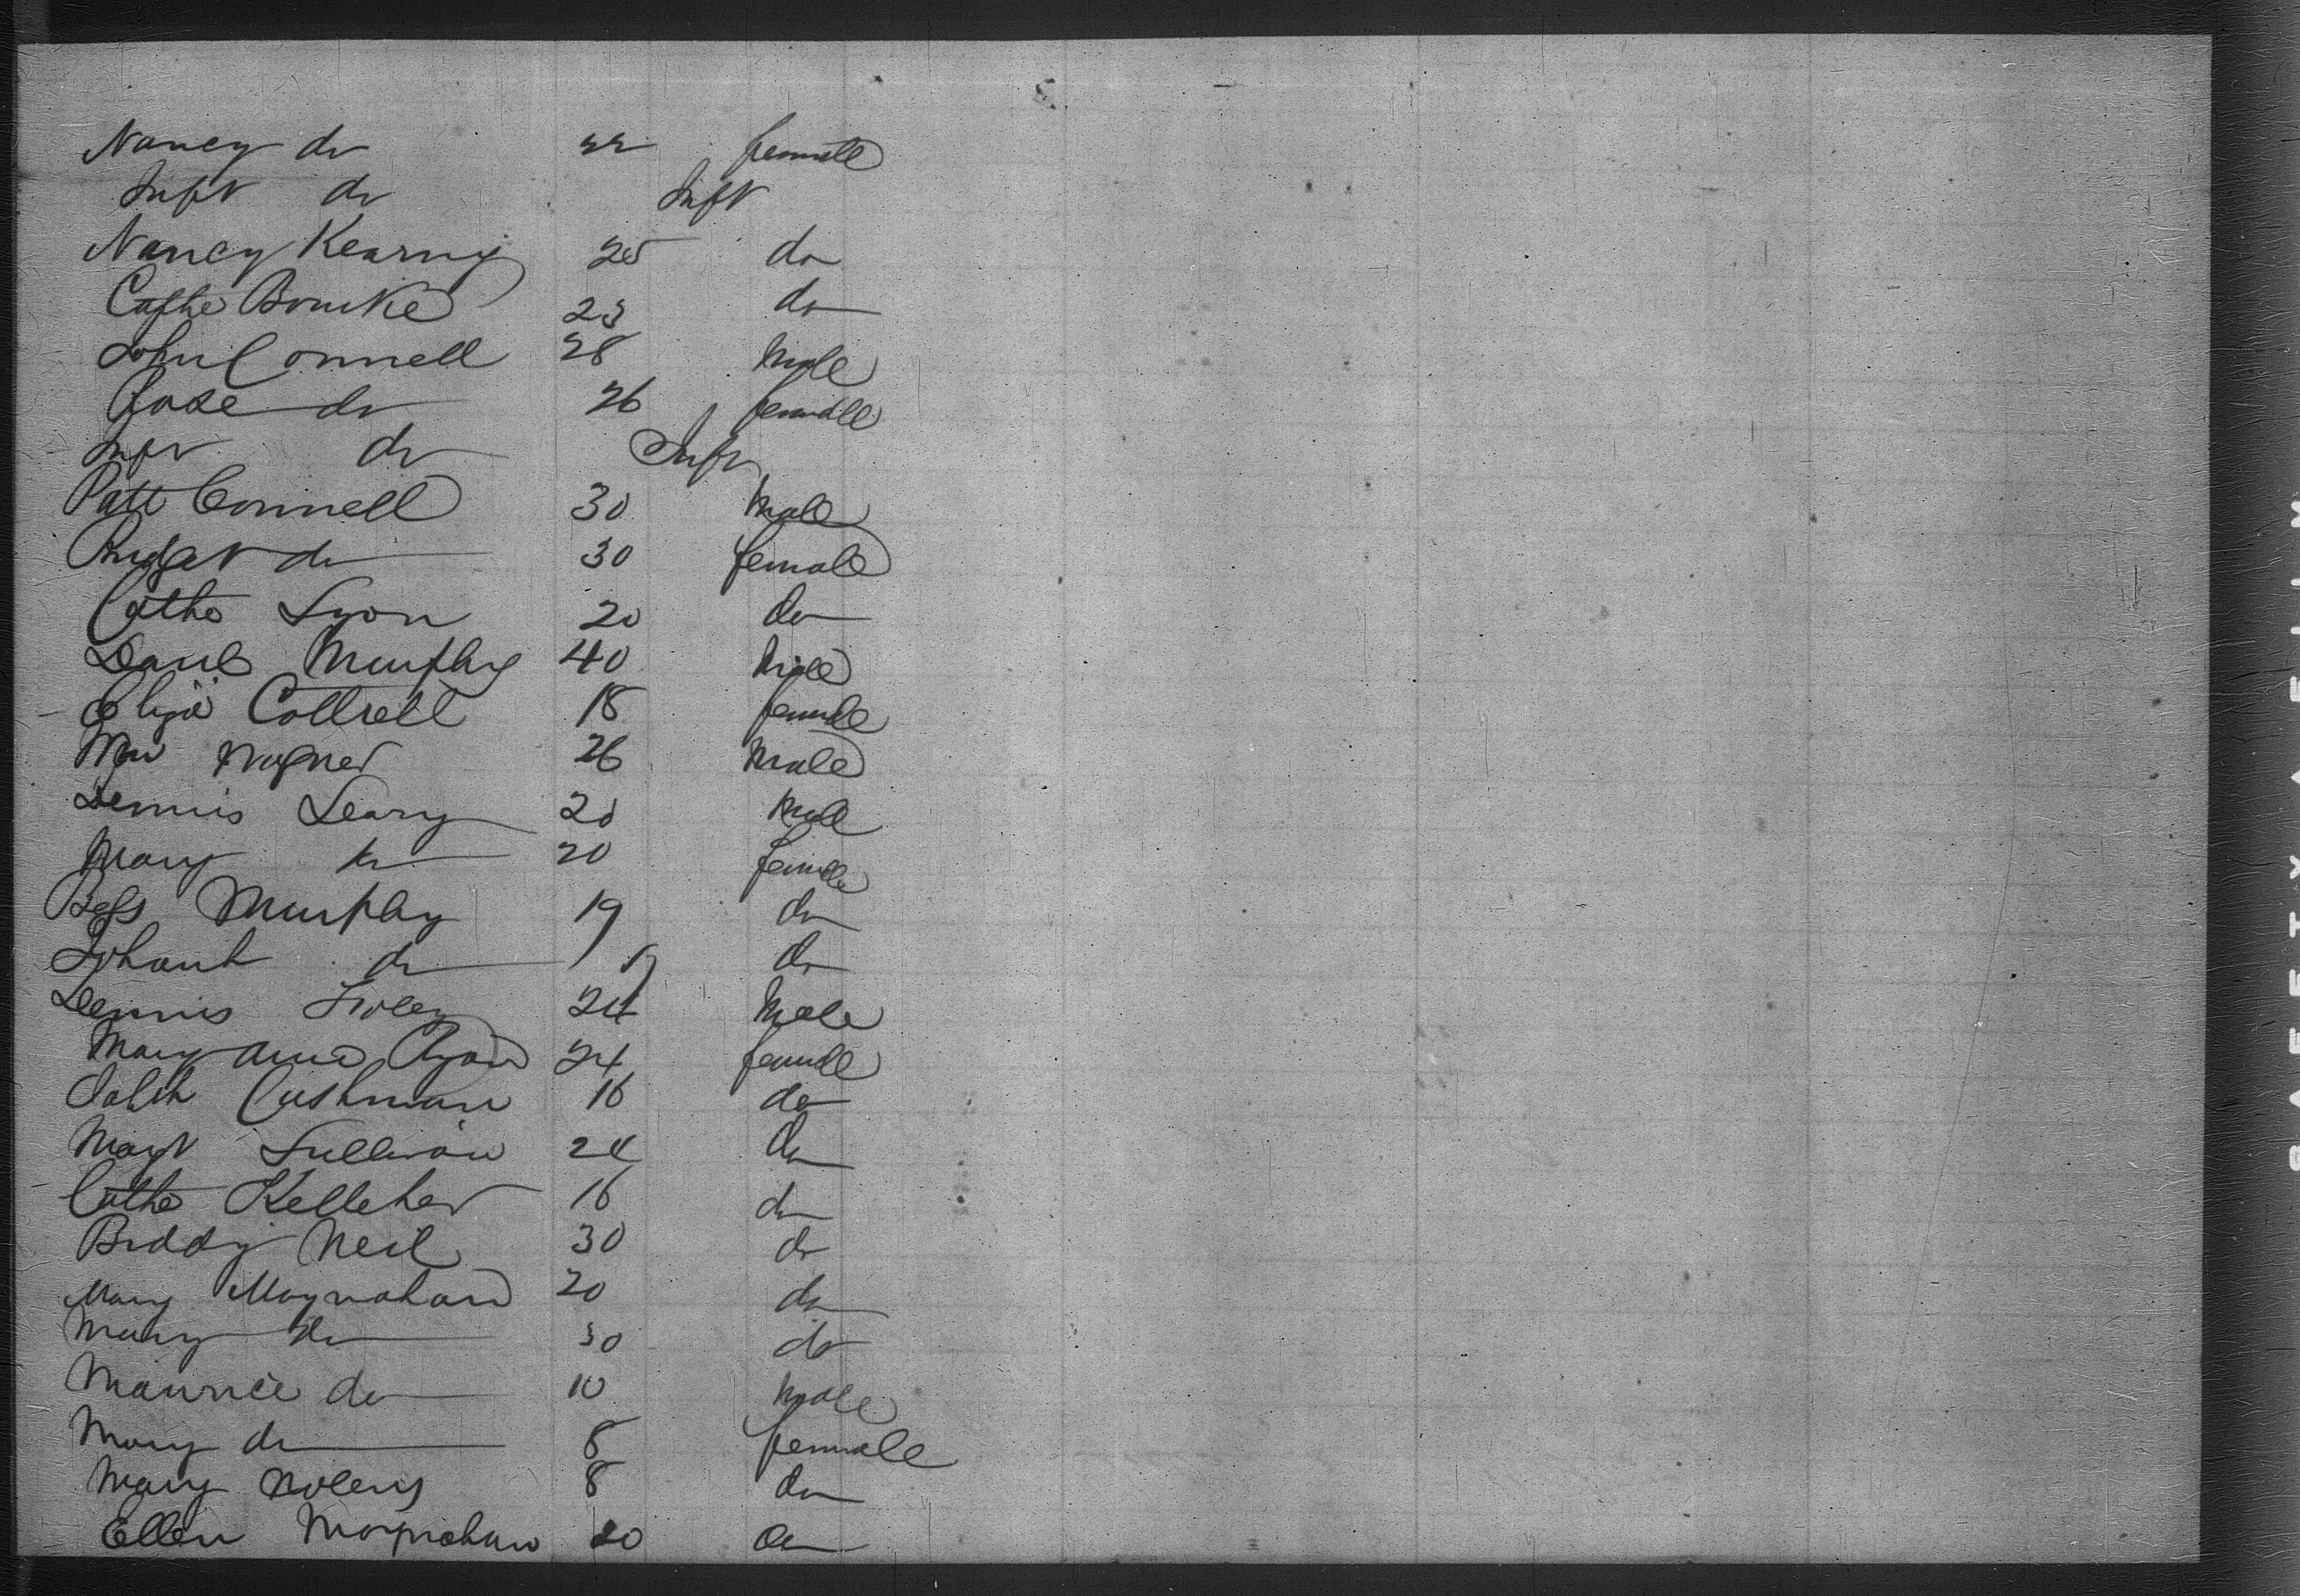 Nancy do 22 female
Inft do Inft
Nancy Kearny 25 do
Cathe Bourke 23 do
John Connell 28 Male
Rose do 26 female
Inft do Inft
Patt Connell 30 Male
Bridget do 30 female
Cathe Lyon 20 do
Danl Murphy 40 Male
Eliza Cottrell 18 female
Wm Wagner 26 Male
Dennis Leary 20 Male
Mary do 20 female
Bess Murphy 19 do
Johanh do 19 do
Dennis Foley 24 Male
Mary Anna Ryan 24 female
Cushman 16 do
Magt Sullivan 24 do
Cathe Kelleher 16 do
Biddy Neil 30 do
Mary Moynahan 20 do
Mary do 30 do
Maurice do 10 Male
Mary do 8 female
Mary Nolens 8 do
Ellen Moynahan 20 do
SAFETY FILM